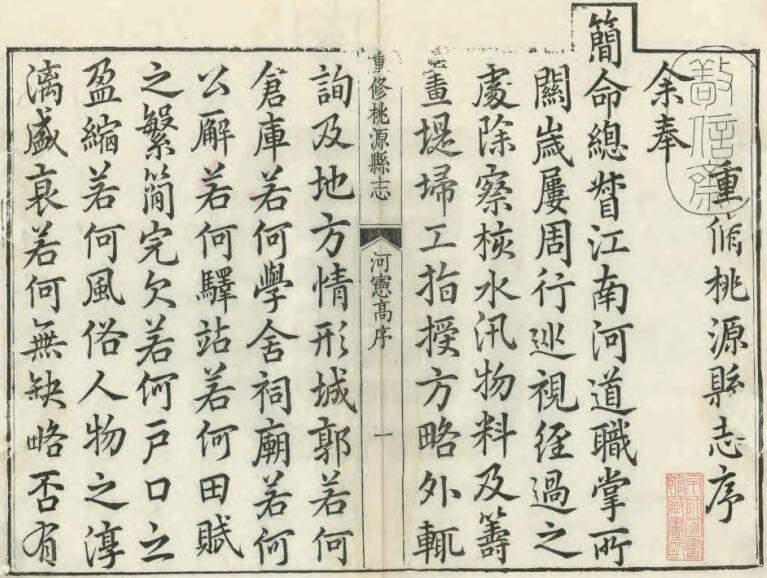 重脩桃源縣志序
余奉
簡命總督江南河道職掌所
關歲屢周行巡視經過之
處除察核水汛物料及籌
畫堤埽工指授方略外輒
重修桃源縣志
河憲高序
一
詢及地方情形城郭若何
倉庫若何學舍祠廟若何
公廨若何驛站若何田賦
之繁簡完欠若何戶口之
盈縮若何風俗人物之淳
漓盛衰若何無缺略否有